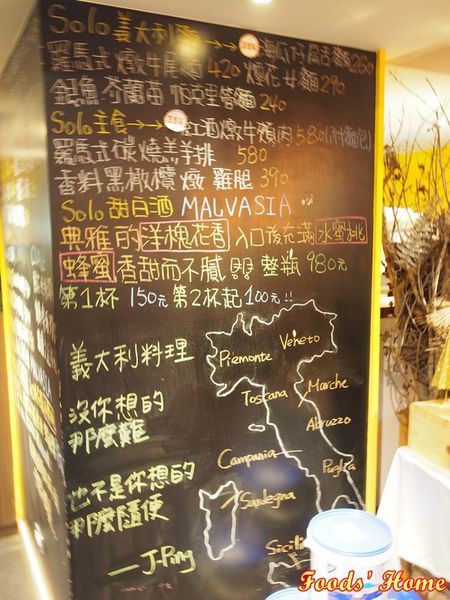 Solo 義大利麵→→ 蛤瓜仔扁舌麵 260
羅馬式燉牛尾麵 420 燉花女麵 290
銀魚芥蘭苗帕克里管麵 240
Solo 主食→→ 紅酒燉牛頰肉 580 (附麵包)
羅馬式碳燒羔羊排 580
香料黑橄欖燉雞腿 390
Solo 甜白酒 MALVASIA
典雅的洋槐花香 入口後充滿 水蜜桃
蜂蜜 香甜而不膩 整瓶 980元
第1杯 150元 第2杯起 100元!!
義大利料理
沒你想的
那麼難
也不是你想的
那麼隨便
—J-Ping
Piemonte
Veneto
Toscana
Marche
Abruzzo
Campania
Puglia
Sardegna
Sicilia
Foods' Home